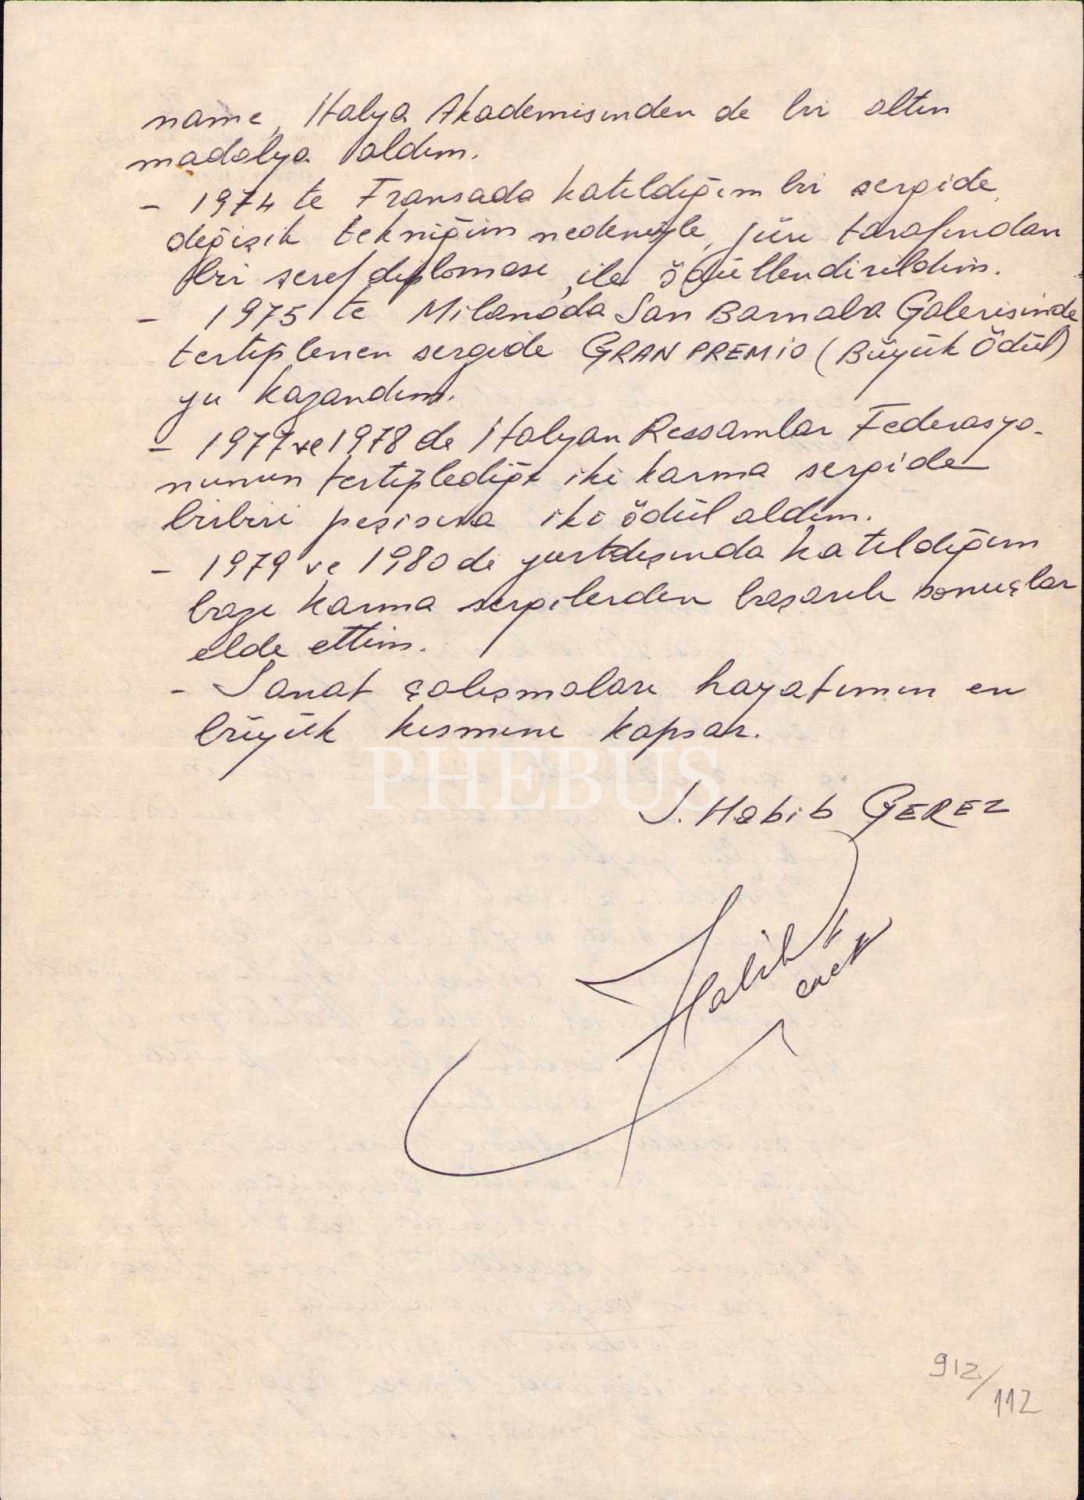 name, İtalya Akademisinden de bir altın
madalya aldım.
- 1974 te Fransada katıldığım bir sergide,
değişik tekniğim nedeniyle, jüri tarafından
bir şeref diploması ile ödüllendirildim.
- 1975 te Milanoda San Barnaba Galerisinde
tertiplenen sergide GRAN PREMIO (Büyük Ödül)
yu kazandım.
- 1977 ve 1978 de İtalyan Ressamlar Federasyo-
nunun tertiplediği iki karma sergide
birbiri peşisıra iki ödül aldım.
- 1979 ve 1980 de yurtdışında katıldığım
bazı karma sergilerden başarılı sonuçlar
elde ettim.
- Sanat çalışmaları hayatımın en
büyük kısmını kapsar.
PHEBUS
J. Habib GEREZ
Habib
Gerez
912/112